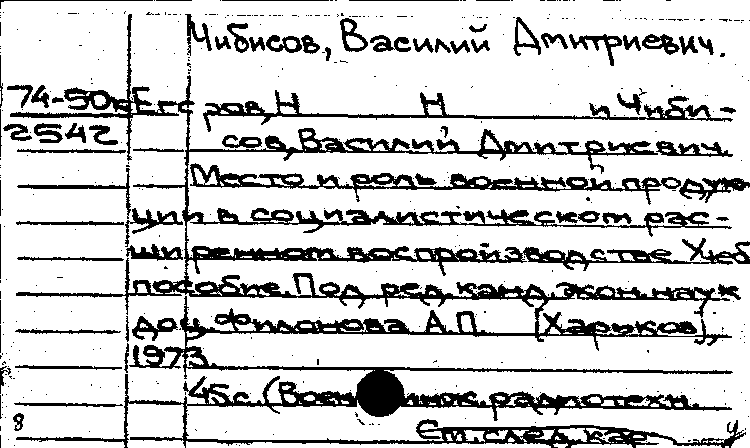 Чибисов, Василий Дмитриевич.
74-50к Егоров, Н Н и Чиби-
2542 сов, Василий Дмитриевич.
Место и роль военной продук-
ции в социалистическом рас-
ширенном воспроизводстве. Учеб
пособие. Под ред. канд. экон. наук
доц. Филонова А.П. [Харьков],
1973.
45с. (Воен. инж. радиотехн.
См. след. кар
8